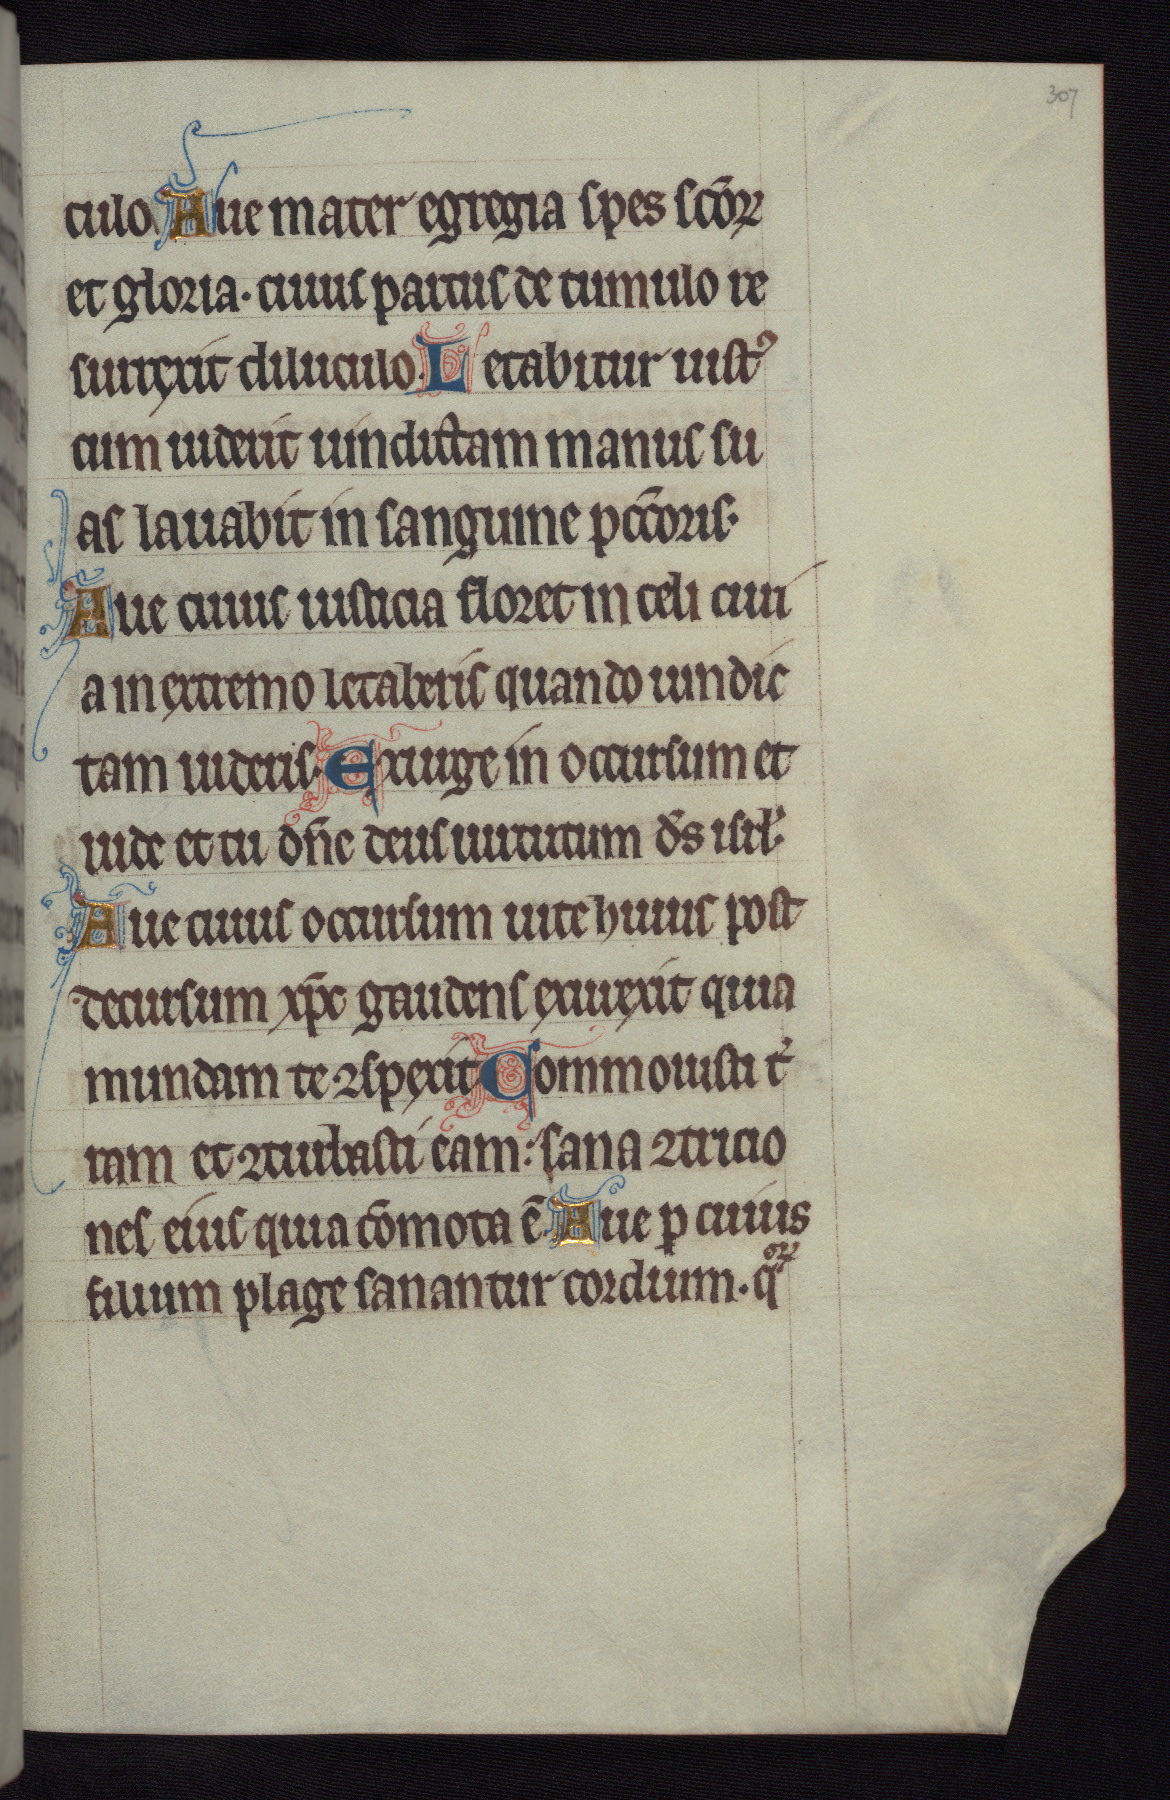 307
culo. Aue mater egregia spes sco̅ꝝ
et gloria. cuius partus de tumulo re
surrexit diluculo. Letabitur iustꝰ
cum uiderit uindictam manus su
as lauabit in sanguine pcc̅oris.
Aue cuius iusticia floret in celi curi
a in extremo letaberis quando uindic
tam uideris. Exurge in occursum et
uide et tu dn̅e deus uirtutum ds̅ isrl̅.
Aue cuius occursum uite huius post
decursum xp̅c gaudens exurexit quia
mundam te ꝯspexit Commouisti t̓
ram et ꝯturbasti eam: sana ꝯtricio
nes eius quia co̅mota e̅. Aue ꝑ cuius
filium plage sanantur cordium. qͦꝝ